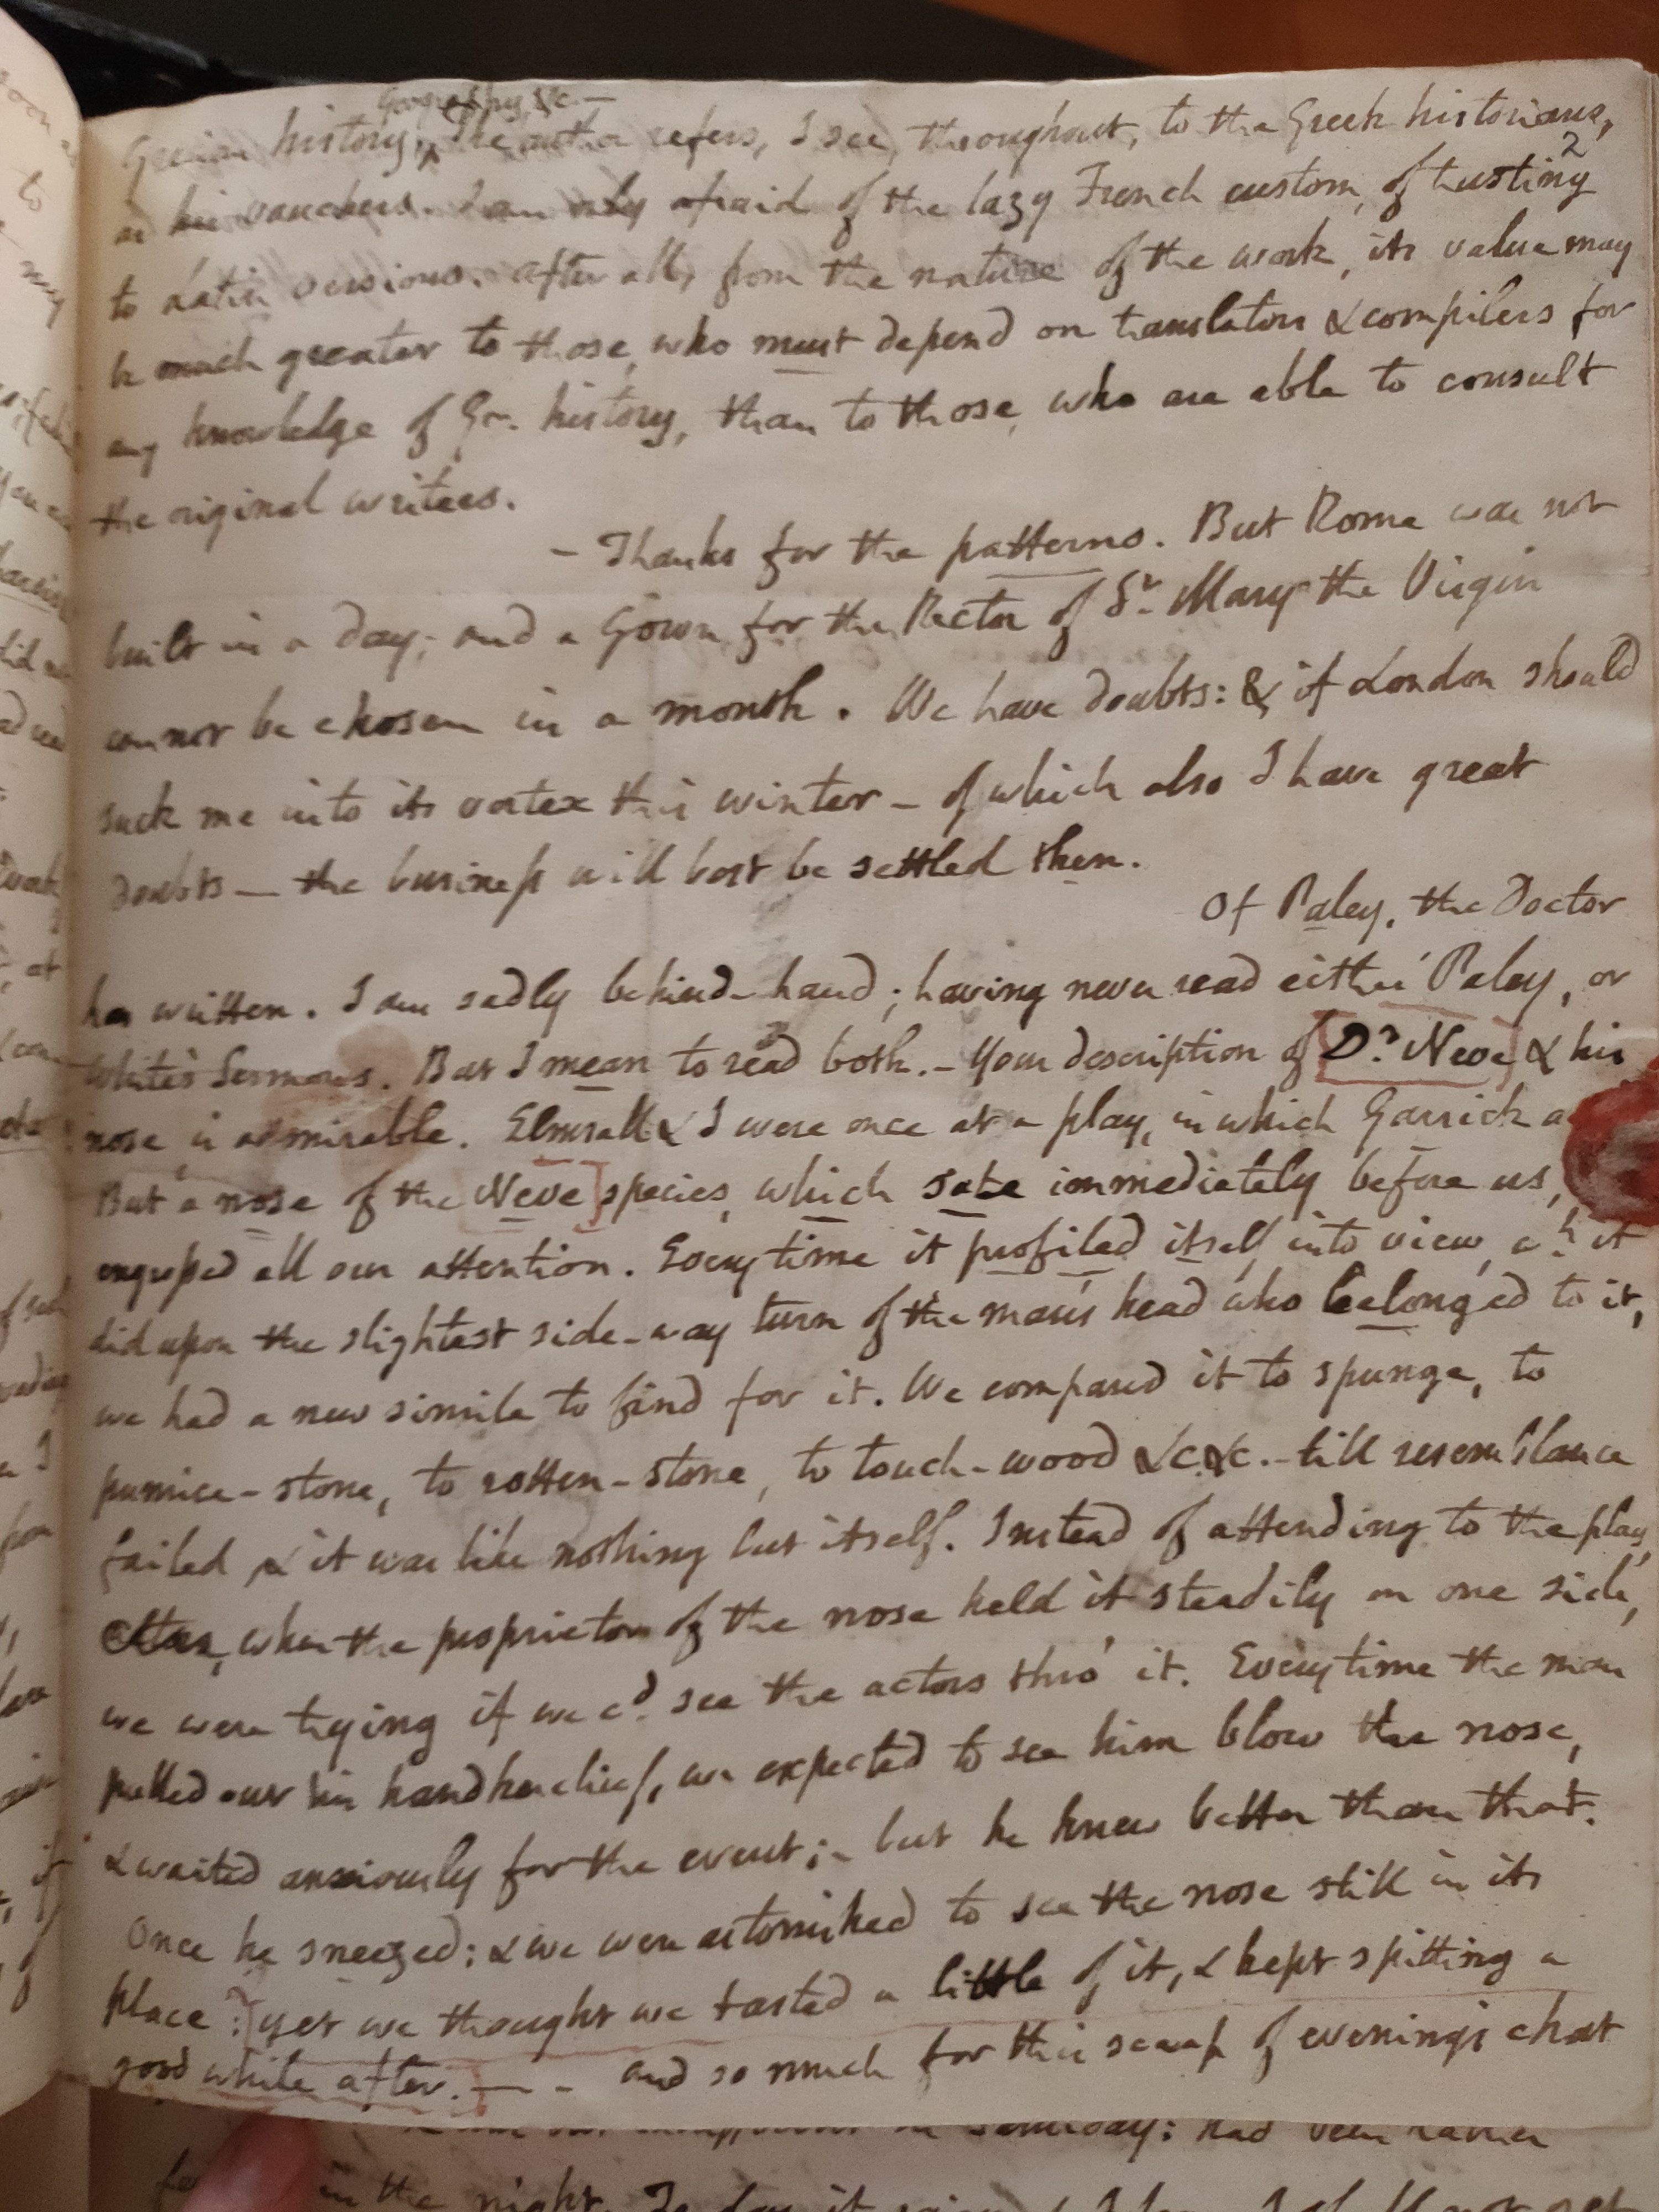 Geography, &c. —
Grecian history, the author refers, I see, throughout, to the Greek historians,
as his vouchers. I am only afraid of the lazy French custom, of trusting
2
to Latin versions. After all, from the nature of the work, its value may
be much greater to those, who must depend on translators & compilers for
any knowledge of Gr. history, than to those, who are able to consult
the original writers.
– Thanks for the patterns. But Rome was not
built in a day; and a Gown for the Rector of St. Mary the Virgin
cannot be chosen in a month. We have doubts: & if London should
suck me into its vortex this winter – of which also I have great
doubts — the business will best be settled then.
Of Paley, the Doctor
has written. I am sadly behind-hand; having never read either Paley, or
White's Sermons. But I mean to read both. – Your description of Dr. Neve & his
nose is admirable. Elmsall & I were once at a play, in which Garrick a
But a nose of the Neve species, which sate immediately before us,
engrossed all our attention. Every time it profiled itself into view, wh. it
did upon the slightest side-way turn of the man's head who belonged to it,
we had a new simile to find for it. We compared it to spunge, to
pumice-stone, to rotten-stone, to touch-wood &c &c. – till resemblance
failed, & it was like nothing but itself. Instead of attending to the play,
when the proprietor of the nose held it steadily on one side,
we were trying if we cd. see the actors thro' it. Every time the man
pulled out his handkerchief, we expected to see him blow the nose,
& waited anxiously for the event; – but he knew better than that.
Once he sneezed; & we were astonished to see the nose still in its
place: yet we thought we tasted a little of it, & kept spitting a
good while after. — – and so much for this scrap of evening's chat